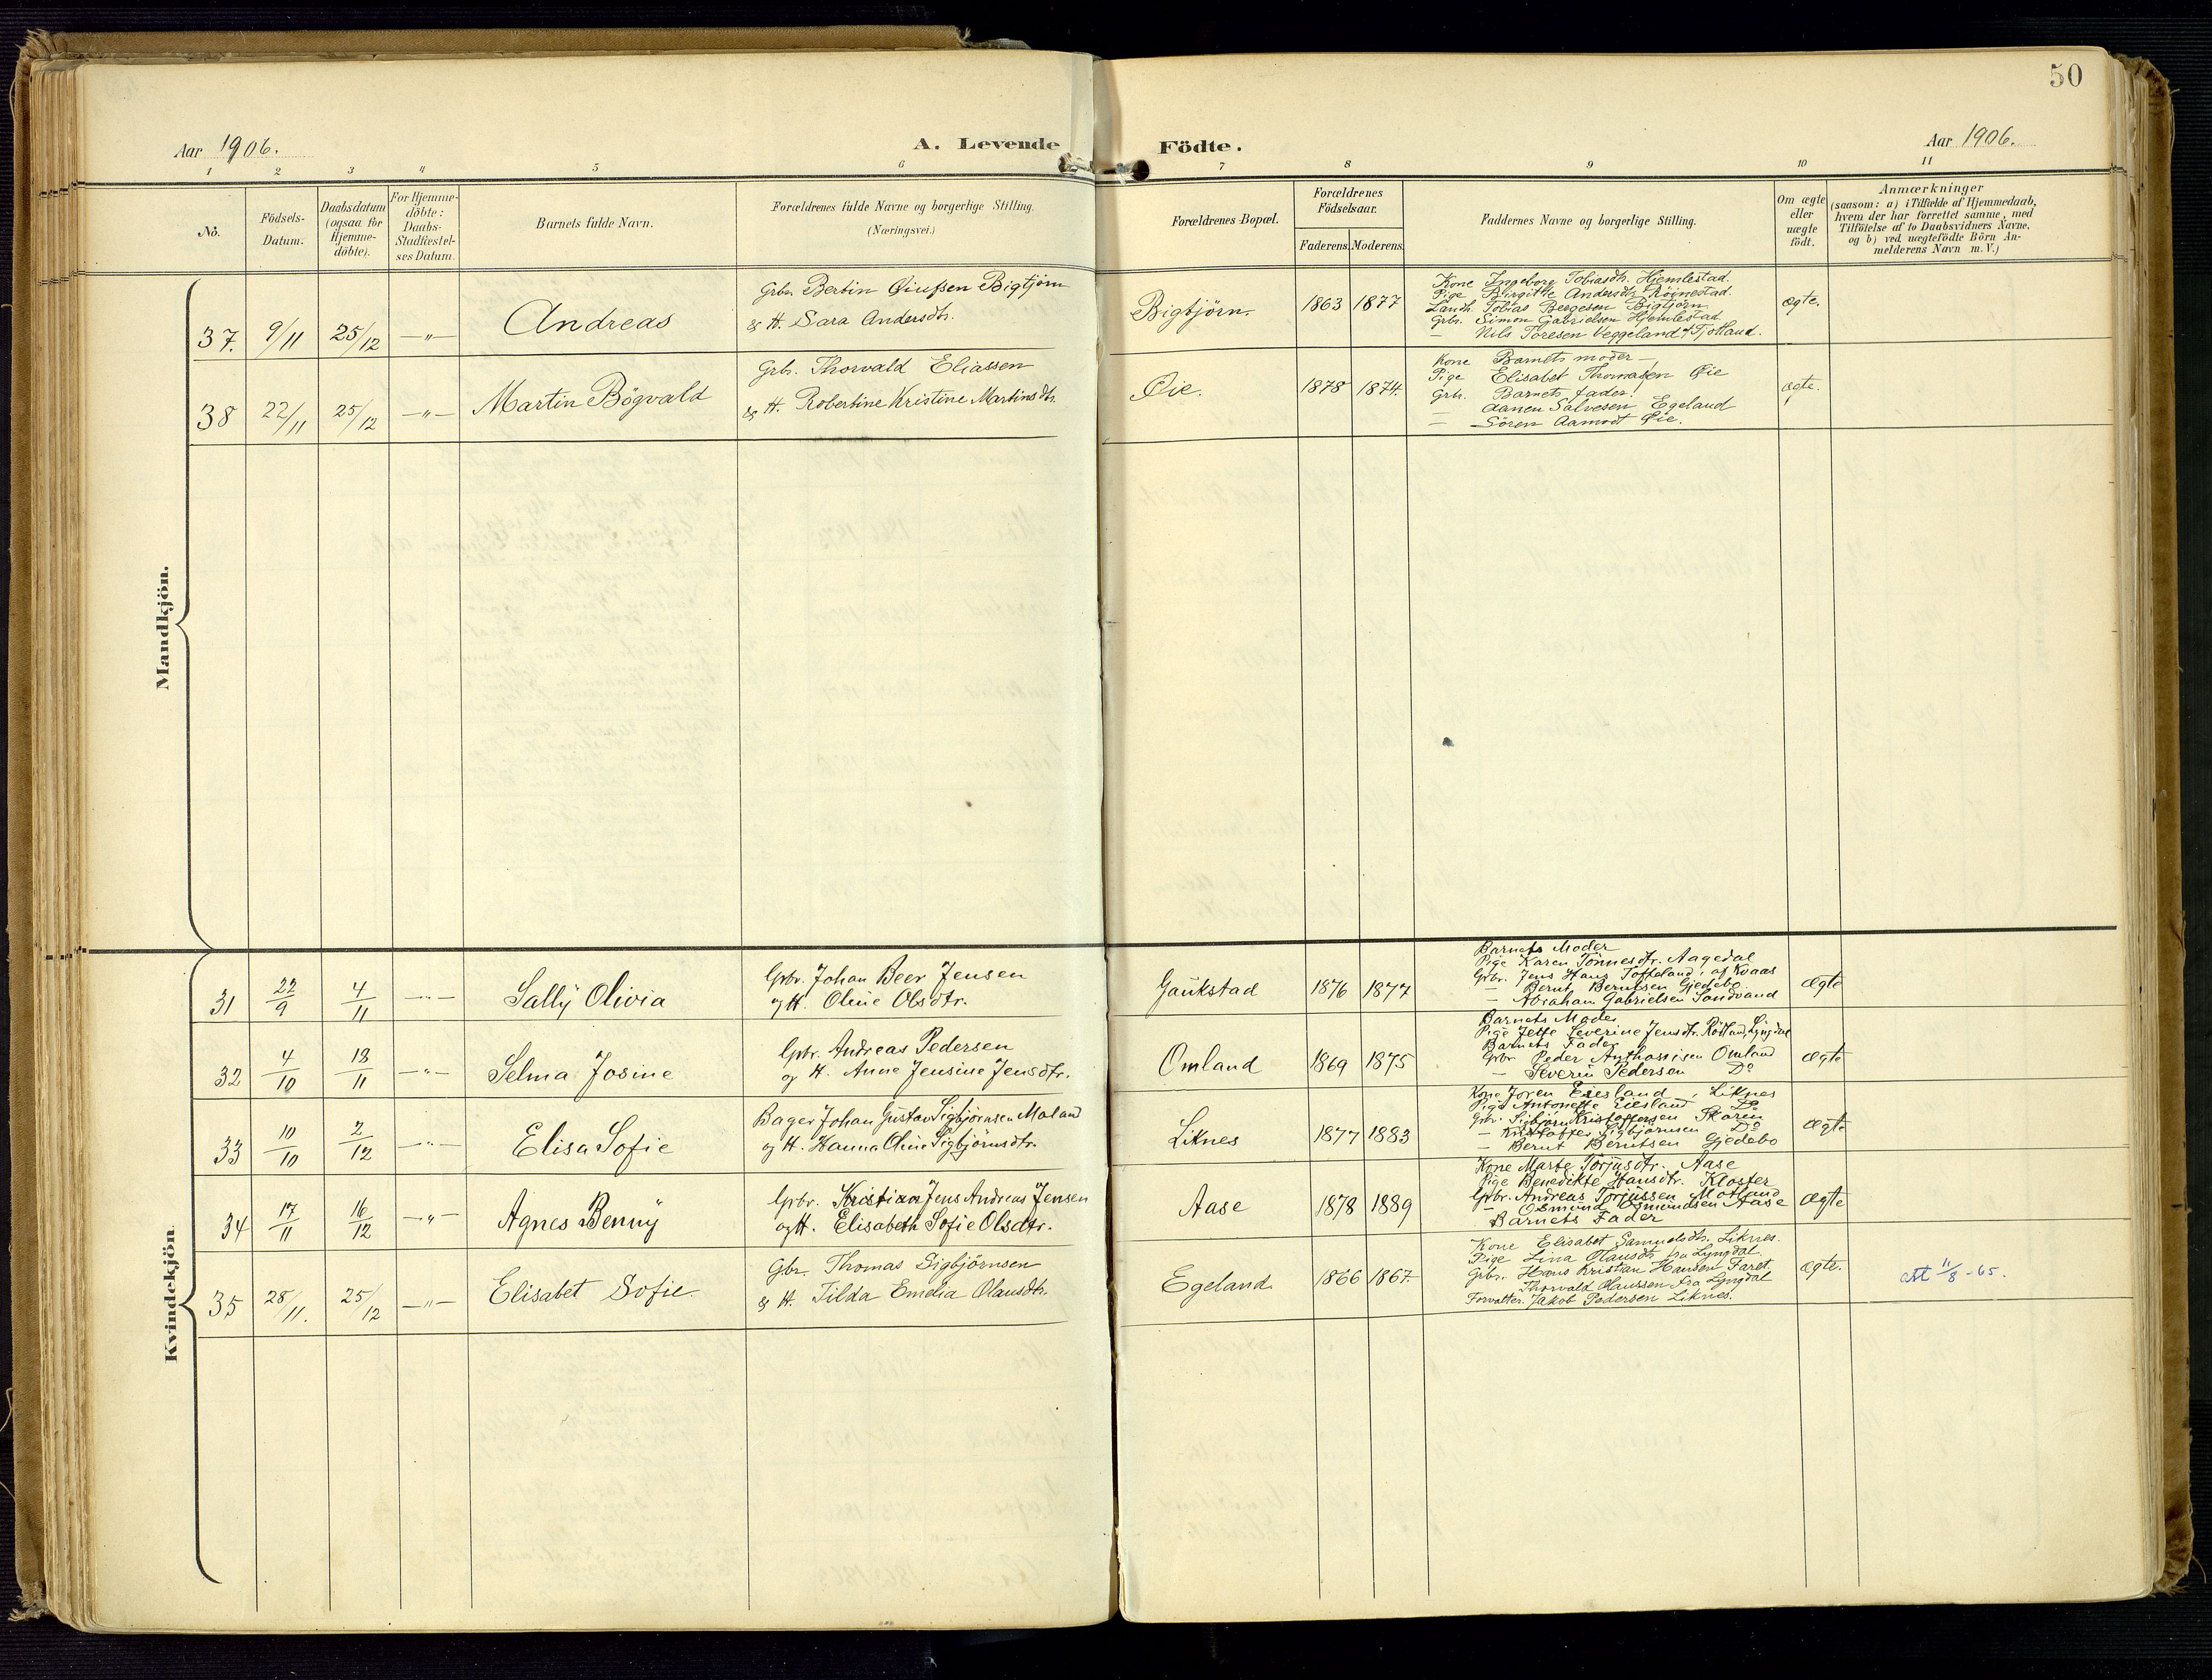 50
Aar 1906.
A. Levende Födte.
Aar 1906.
1 2 3 4 5 6 7 8 9 10 11
No.
Födsels-
Datum.
Daabsdatum
(ogsaa for
Hjemme-
döbte).
For Hjemme-
döbte:
Daabs-
Stadfæstel-
ses Datum.
Barnets fulde Navn.
Forældrenes fulde Navne og borgerlige Stilling.
(Næringsvei.)
Forældrenes Bopæl.
Forældrenes
Födselsaar.
Faderens. Moderens.
Faddernes Navne og borgerlige Stilling.
Om ægte
eller
uægte
födt.
Anmærkninger
(saasom: a) i Tilfælde af Hjemmedaab,
hvem der har forrettet samme, med
Tilföielse af to Daabsvidners Navne.
og b) ved uægtefödte Börn An-
melderens Navn m. V.)
Mandkjön.
37. 9/11 25/12 —"— Andreas
Grbr. Bertin Bigtjörn
& H. Sara Andersdtr.
Bigtjörn. 1863 1877
Kone Ingeborg Tobiasdtr. Hjemlestad.
Pige Birgitte Andersdtr. Röinestad.
Landh. Tobias Bergesen Bigtjörn
Grbr. Simon Gabrielsen Hjemlestad
— Nils Toresen Veggeland, Fjotland.
ægte.
38 22/11 25/12 —"— Martin Bögvald
Grbr. Thorvald Eliassen
& H. Robertine Kristine Martinsdtr.
Öie. 1878 1874.
Kone Barnets moder —
Pige Elisabet Thomasen Öie
Grbr. Barnets fader.
— Aanen Salvesen Egeland
— Sören Aamodt Öie.
ægte.
Kvindekjön
31 22/9 4/11 —"— Sally Olivia
Grbr. Johan Beer Jensen
og H. Oline Olsdtr.
Gaukstad 1876 1877
Barnets Moder
Pige Karen Tönnesdtr. Aagedal
Grbr. Jens Hans Tofteland, af Kvaas
— Bernt Berntsen Gjedebo
— Abraham Gabrielsen Sandvand
Ægte
32 4/10 18/11 —"— Selma Josine
Grbr. Andreas Pedersen
og H. Anne Jensine Jensdtr.
Omland 1869 1875
Barnets Moder
Pige Jette Severine Jensdtr. Lyngdal
Barnets Fader
Grbr. Peder Omland
— Severin Pedersen Do
Ægte
33 10/10 2/12 —"— Elisa Sofie
Bager Johan Gustav Sigbjörnsen Moland
og H. Hanna Oline Sigbjörnsdtr.
Liknes 1877 1883
Kone Joren Eiesland, Liknes
Pige Antonette Eiesland Do
Grbr. Sigbjörn Kristoffersen Skaren
— Kristoffer Sigbjörnsen Do
— Bernt Berntsen Gjedebo
Ægte
34 17/11 16/12 —"— Agnes Benny
Grbr. Kristian Jens Andreas Jensen
og H. Elisabeth Sofie Olsdtr.
Aase 1878 1889
Kone Marte Torjusdtr. Aase
Pige Benedikte Hansdtr. Kloster
Grbr. Andreas Torjussen Motland
— Osmund Osmundsen Aase
Barnets Fader
Ægte
35 28/11. 25/12 —"— Elisabet Sofie.
Gbr. Thomas Sigbjörnsen
& H. Tilda Emelia Olausdtr.
Egeland. 1866 1867.
Kone Elisabet Samuelsdtr. Liknes.
Pige Lina Olausdtr. fra Lyngdal.
Grbr. Hans Kristian Hansen Faret.
Thorvald Olaussen fra Lyngdal
Forvalter. Jakob Pedersen Liknes.
ægte.
att 11/8-65.